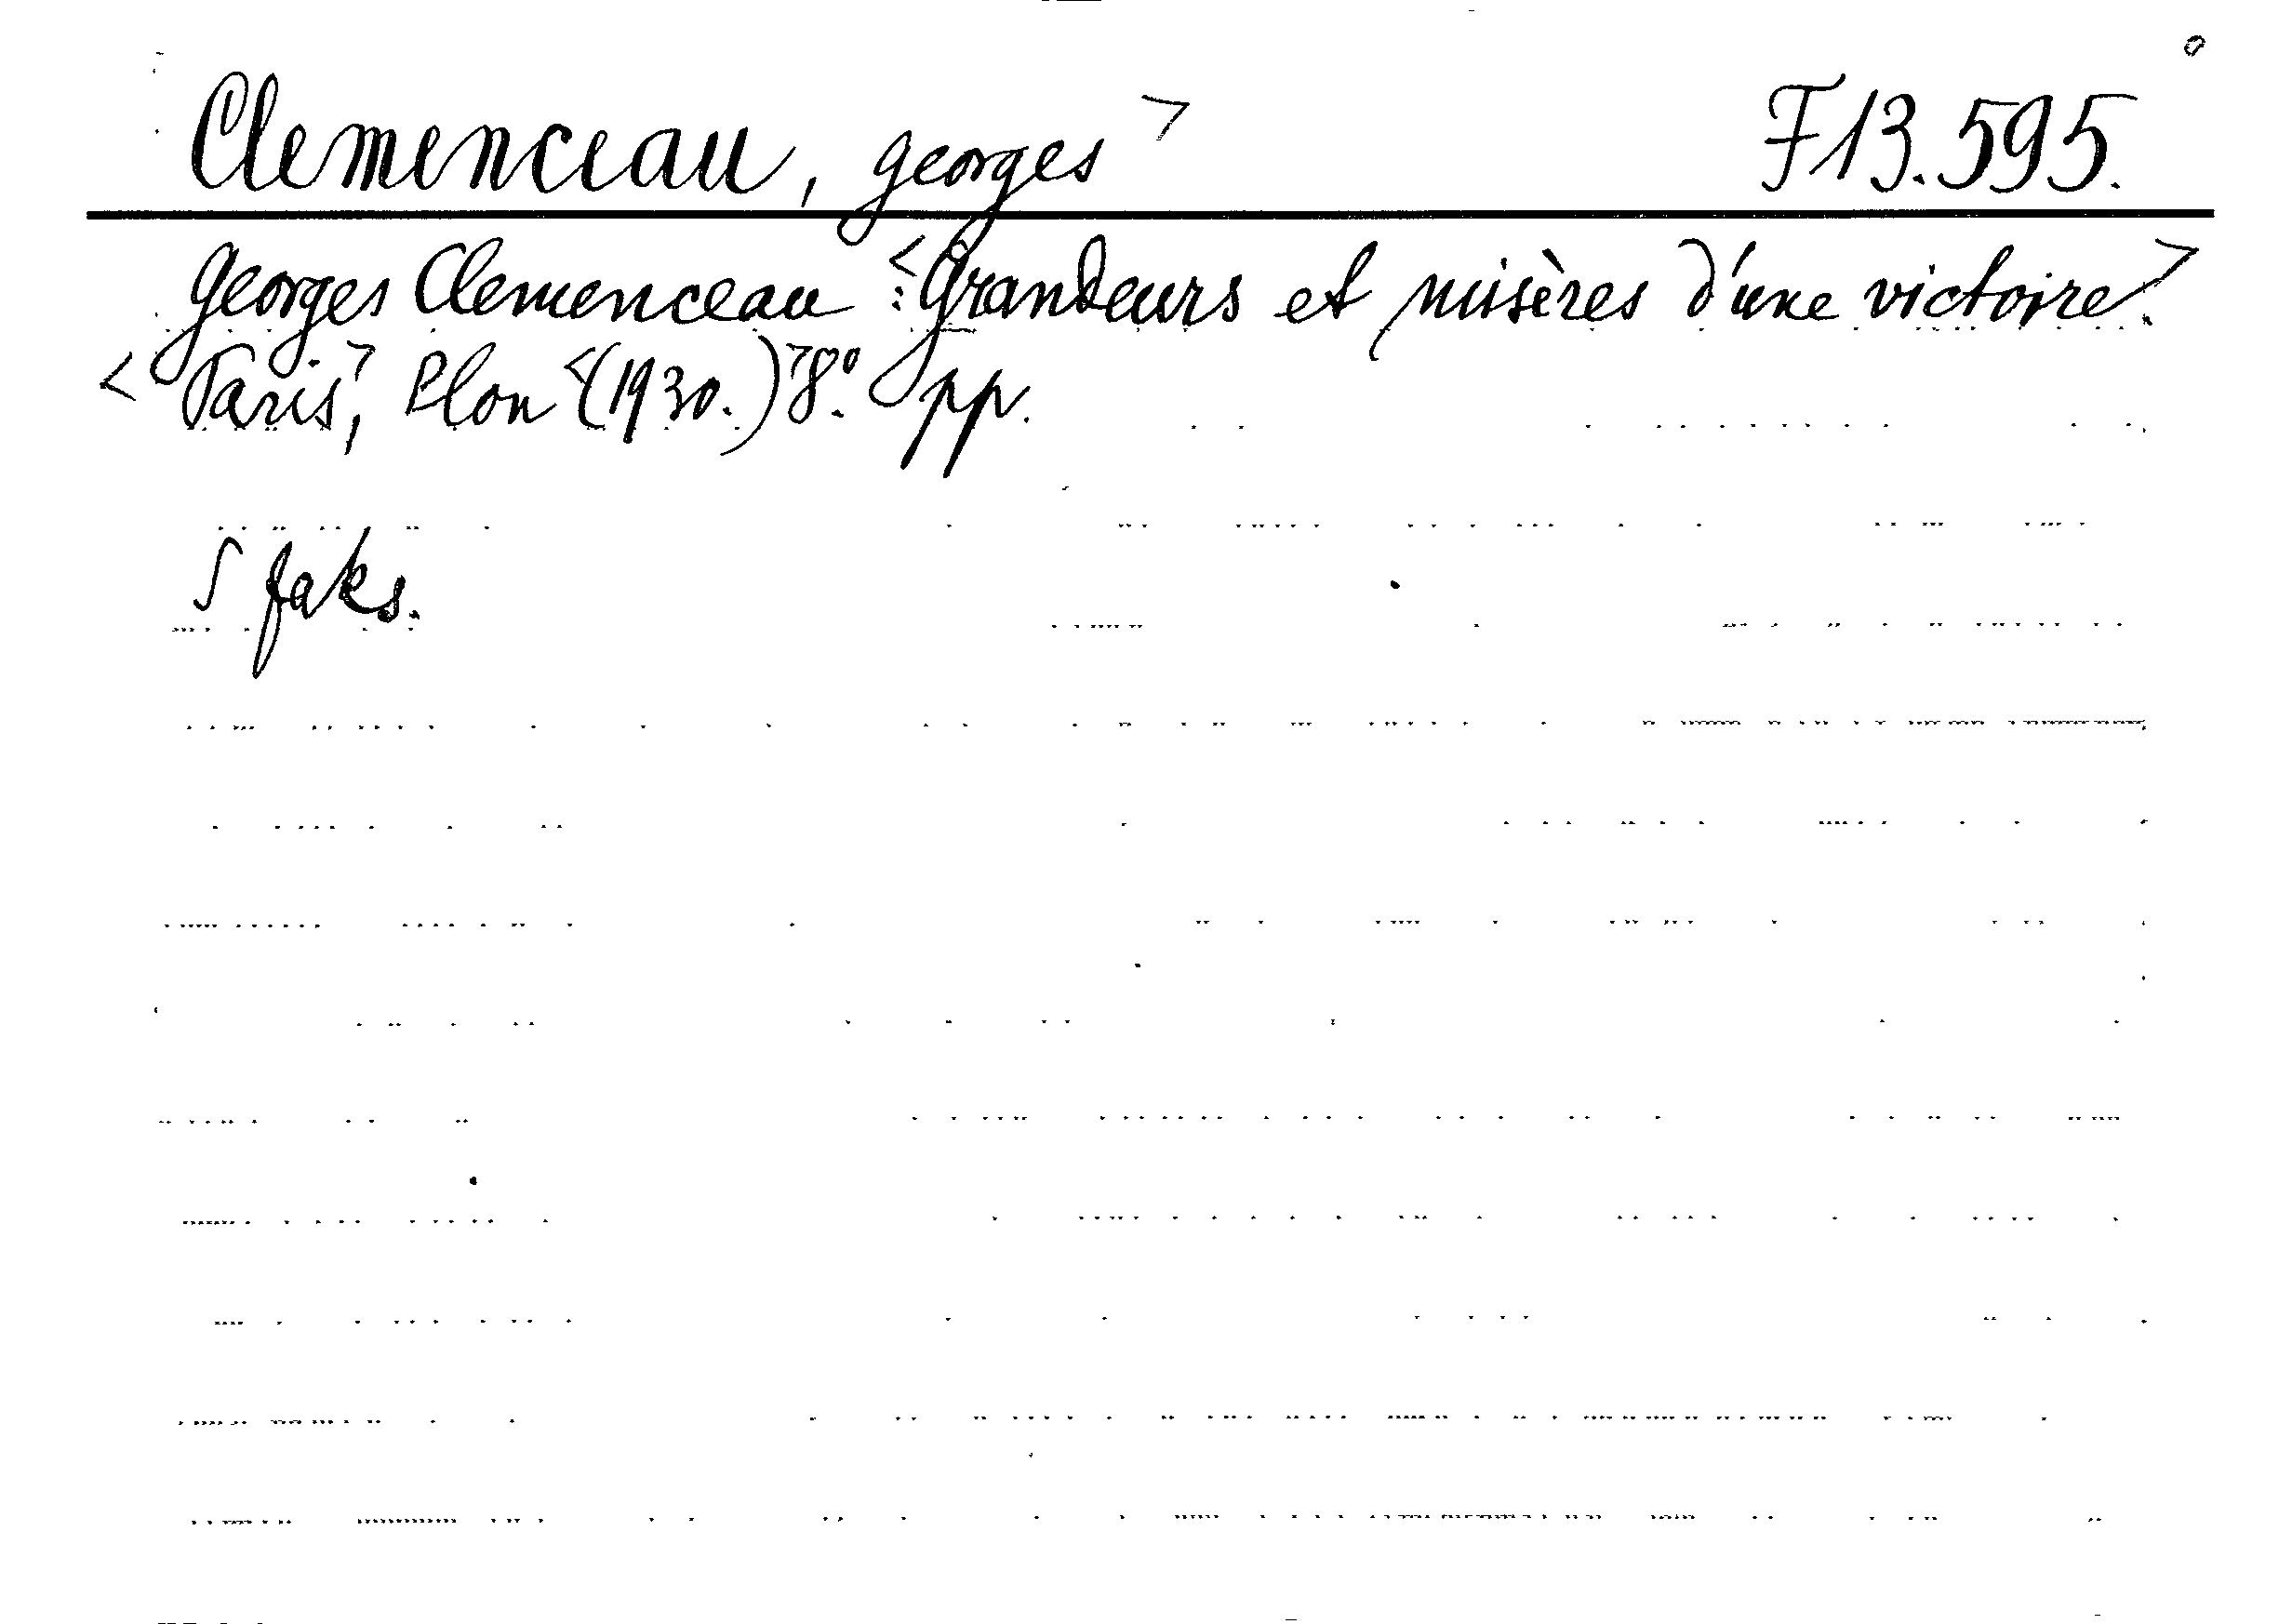 Clemenceau, Georges> F13.595.
Georges Clemenceau :<Grandeurs et misères d'une victoire.>
<Paris,> Plon <(1930.)> 8.° pp.
5 faks.